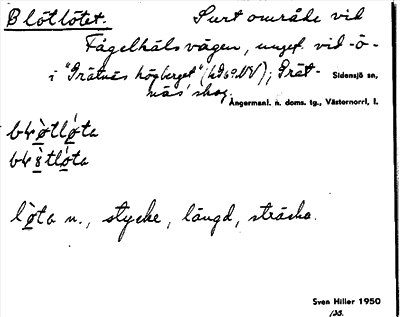 Blötlötet. Surt område vid
Fågelhålsvägen, unget. vid -ö-
i "Grätnäs högberget" (h969NV); Grät-
näs' skog. Sidensjö sn,
Ångermanl. n. doms. tg., Västernorrl. l.
löta n., stycke, längd, sträcka.
Sven Hiller 1950